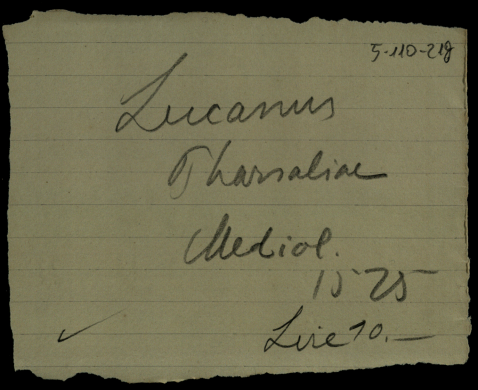 5-110-218
Lucanus
Pharsaliae
Mediol.
1525
Lire 10.—